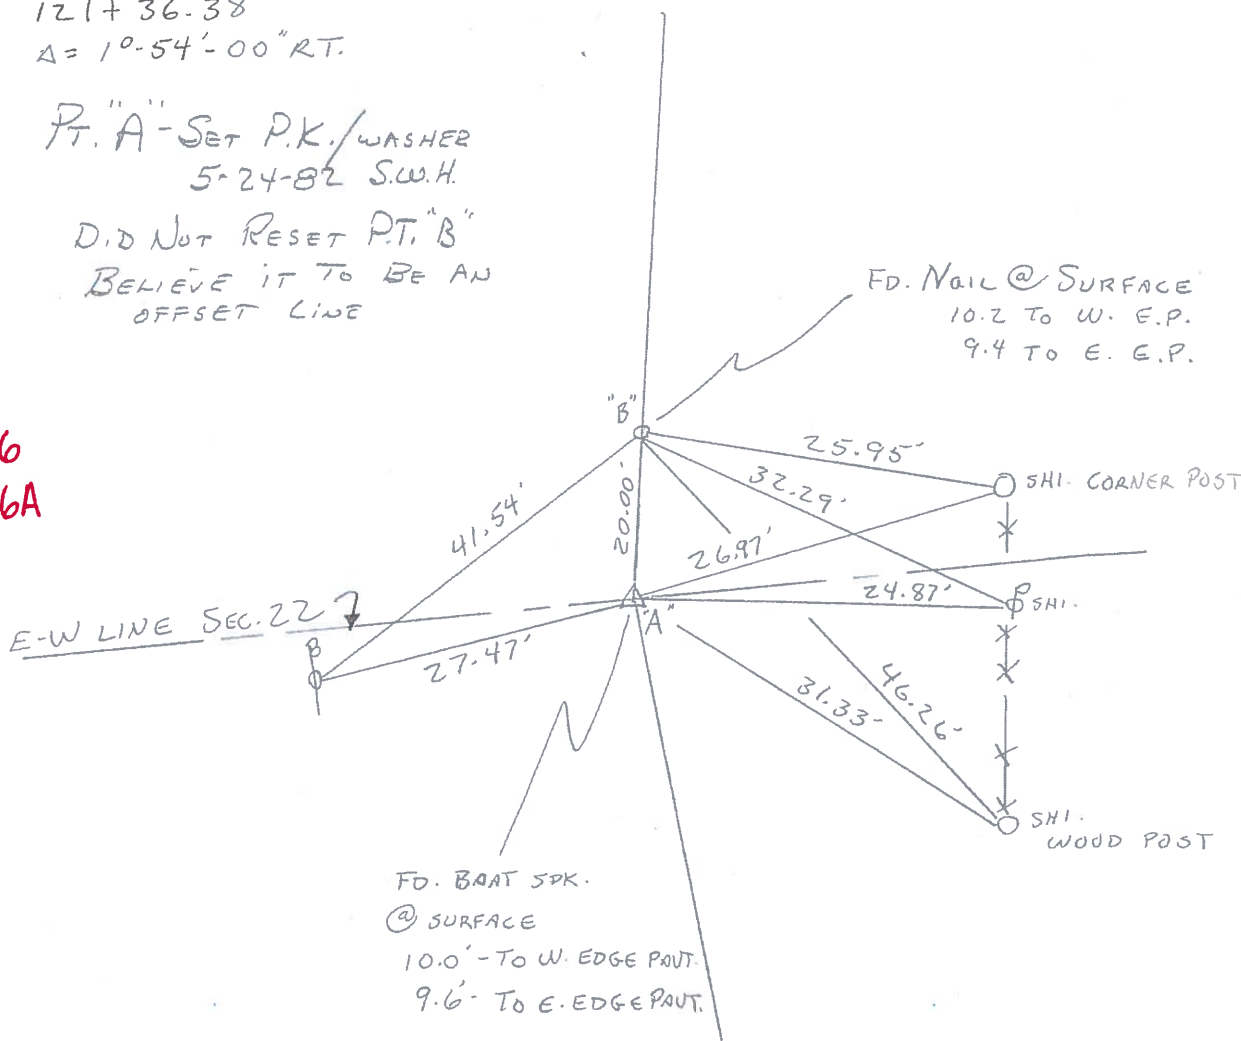 121+36.38
Δ= 1°-54'-00" RT.
PT. "A" - SET P.K./WASHER
5-24-82 S.W.H.
DID NOT RESET PT. "B"
BELIEVE IT TO BE AN
OFFSET LINE
FD. NAIL @ SURFACE
10.2 TO W. E.P.
9.4 TO E. E.P.
6
6A
"B"
25.95'
32.29'
SHI. CORNER POST
41.54'
20.00'
26.97'
24.87'
SHI.
E-W LINE SEC. 22
B
27.47'
"A"
31.33'
46.26'
SHI.
WOOD POST
FD. BOAT SPK.
@ SURFACE
10.0' - TO W. EDGE PAVT.
9.6' - TO E. EDGE PAVT.